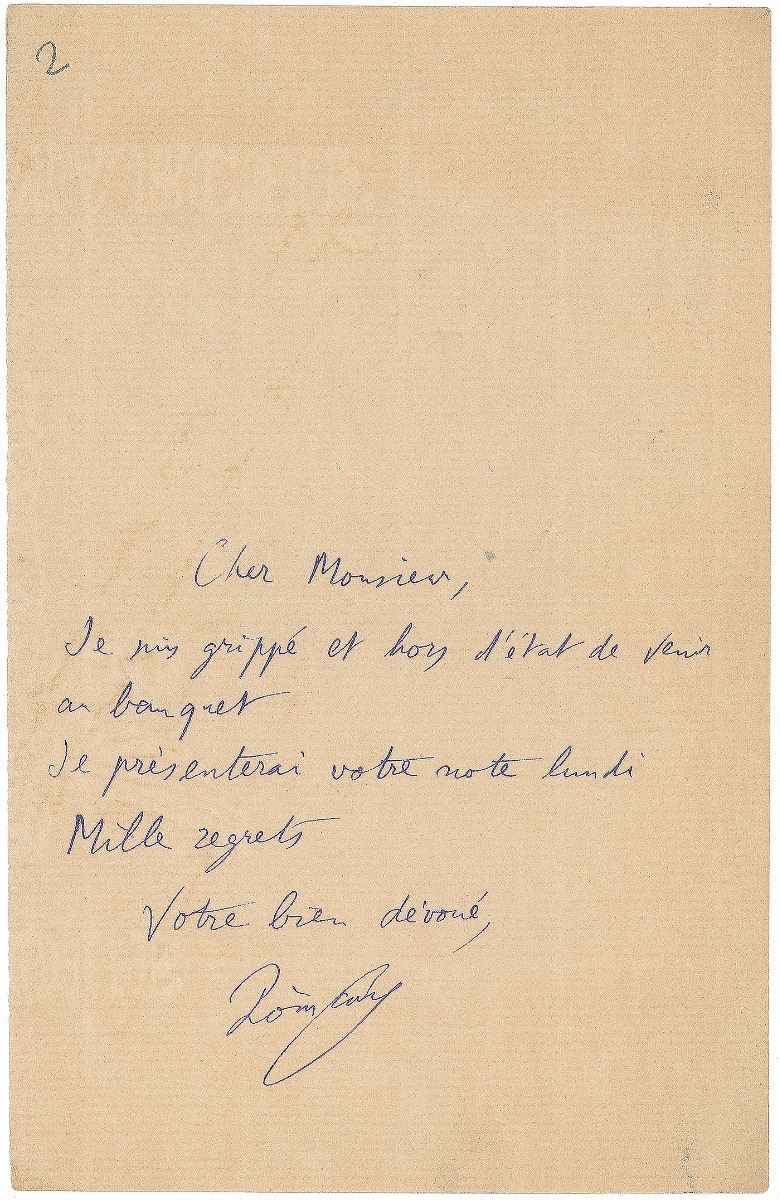 2
Cher Monsieur,
Je suis grippé et hors d'état de venir
au banquet
Je présenterai votre note lundi
Mille regrets
Votre bien dévoué,